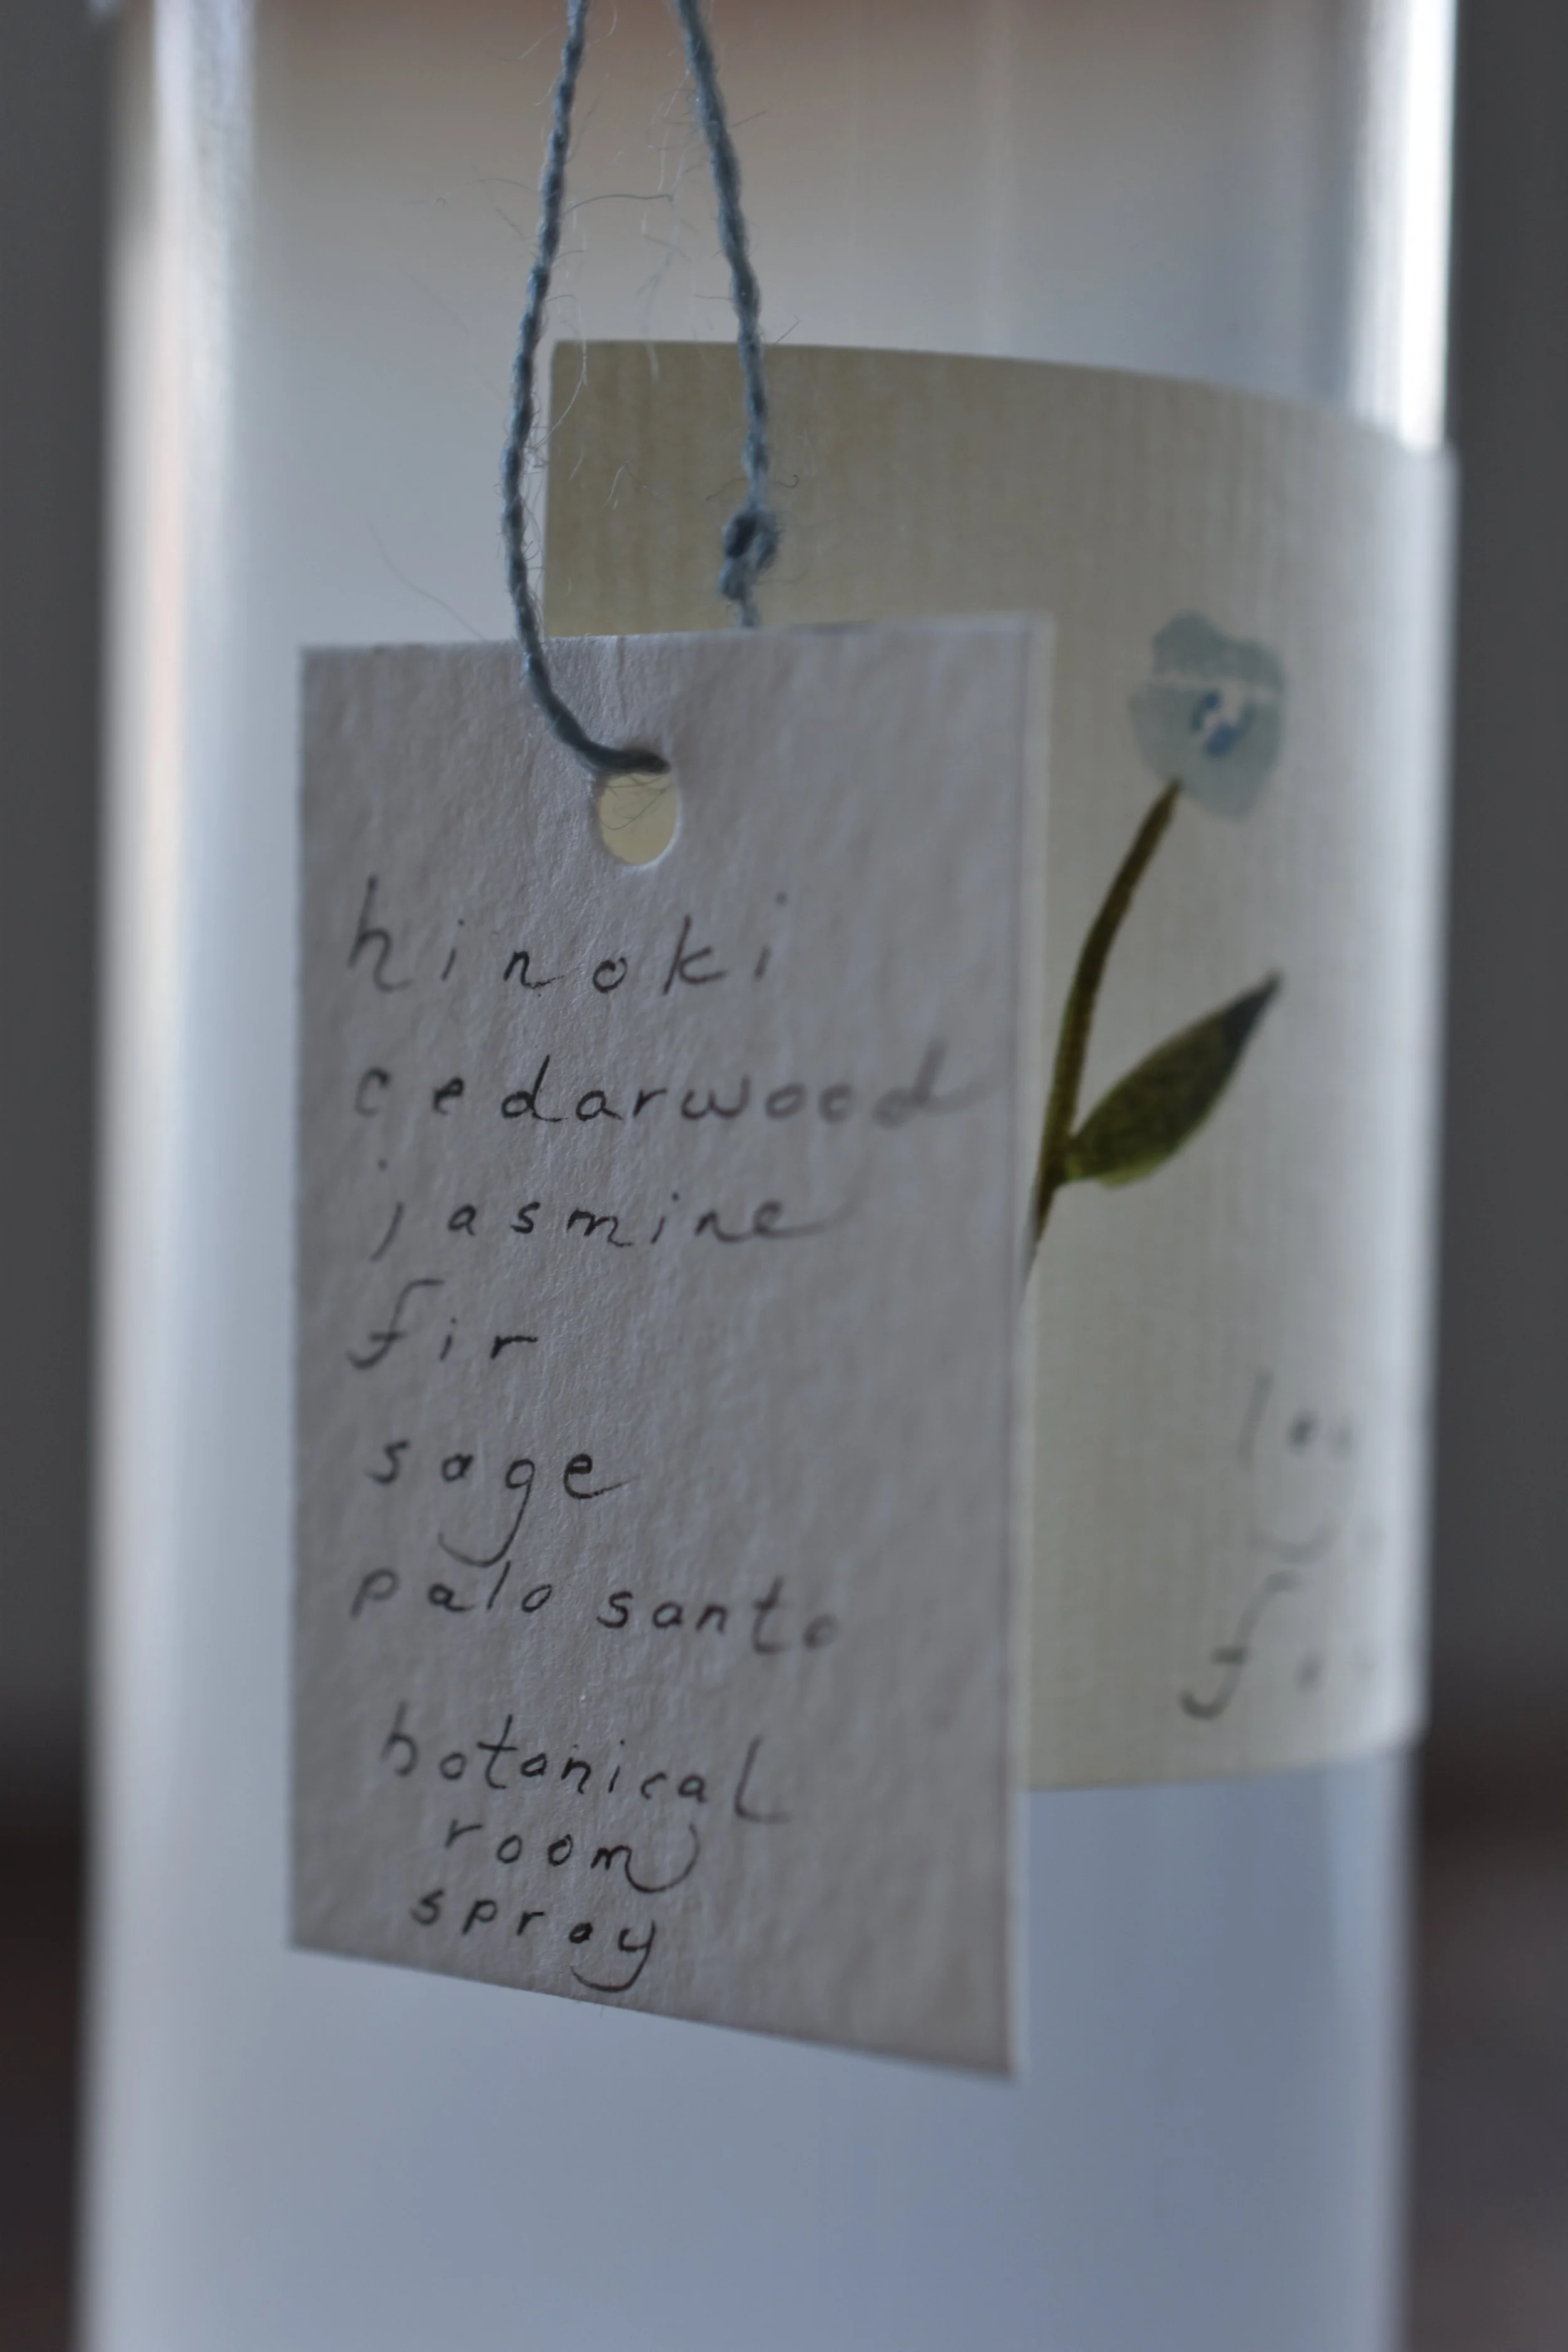 hinoki
cedarwood
jasmine
fir
sage
palo santo
botanical
room
spray